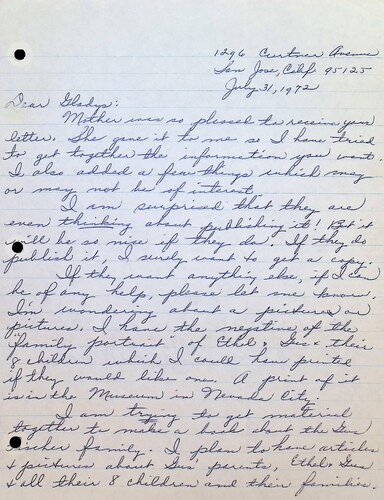 1296 Curtner Avenue
San Jose, Calif. 95125
July 31, 1972
Dear Gladys:
Mother was so pleased to receive your
letter. She gave it to me so I have tried
to get together the information you want.
I also added a few things which may
or may not be of interest.
I am surprised that they are
even thinking about publishing it! But it
will be so nice if they do. If they do
publish it, I surely want to get a copy.
If they want anything else, if I can
be of any help, please let me know.
I'm wondering about a picture or
pictures. I have the negative of the
"family portrait" of Ethel & Gus & their
8 children which I could have printed
if they would like one. A print of it
is in the Museum in Nevada City.
I am trying to get material
together to make a book about the Gus
family. I plan to have articles
& pictures about Gus' parents, Ethel & Gus
& all their 8 children and their families.